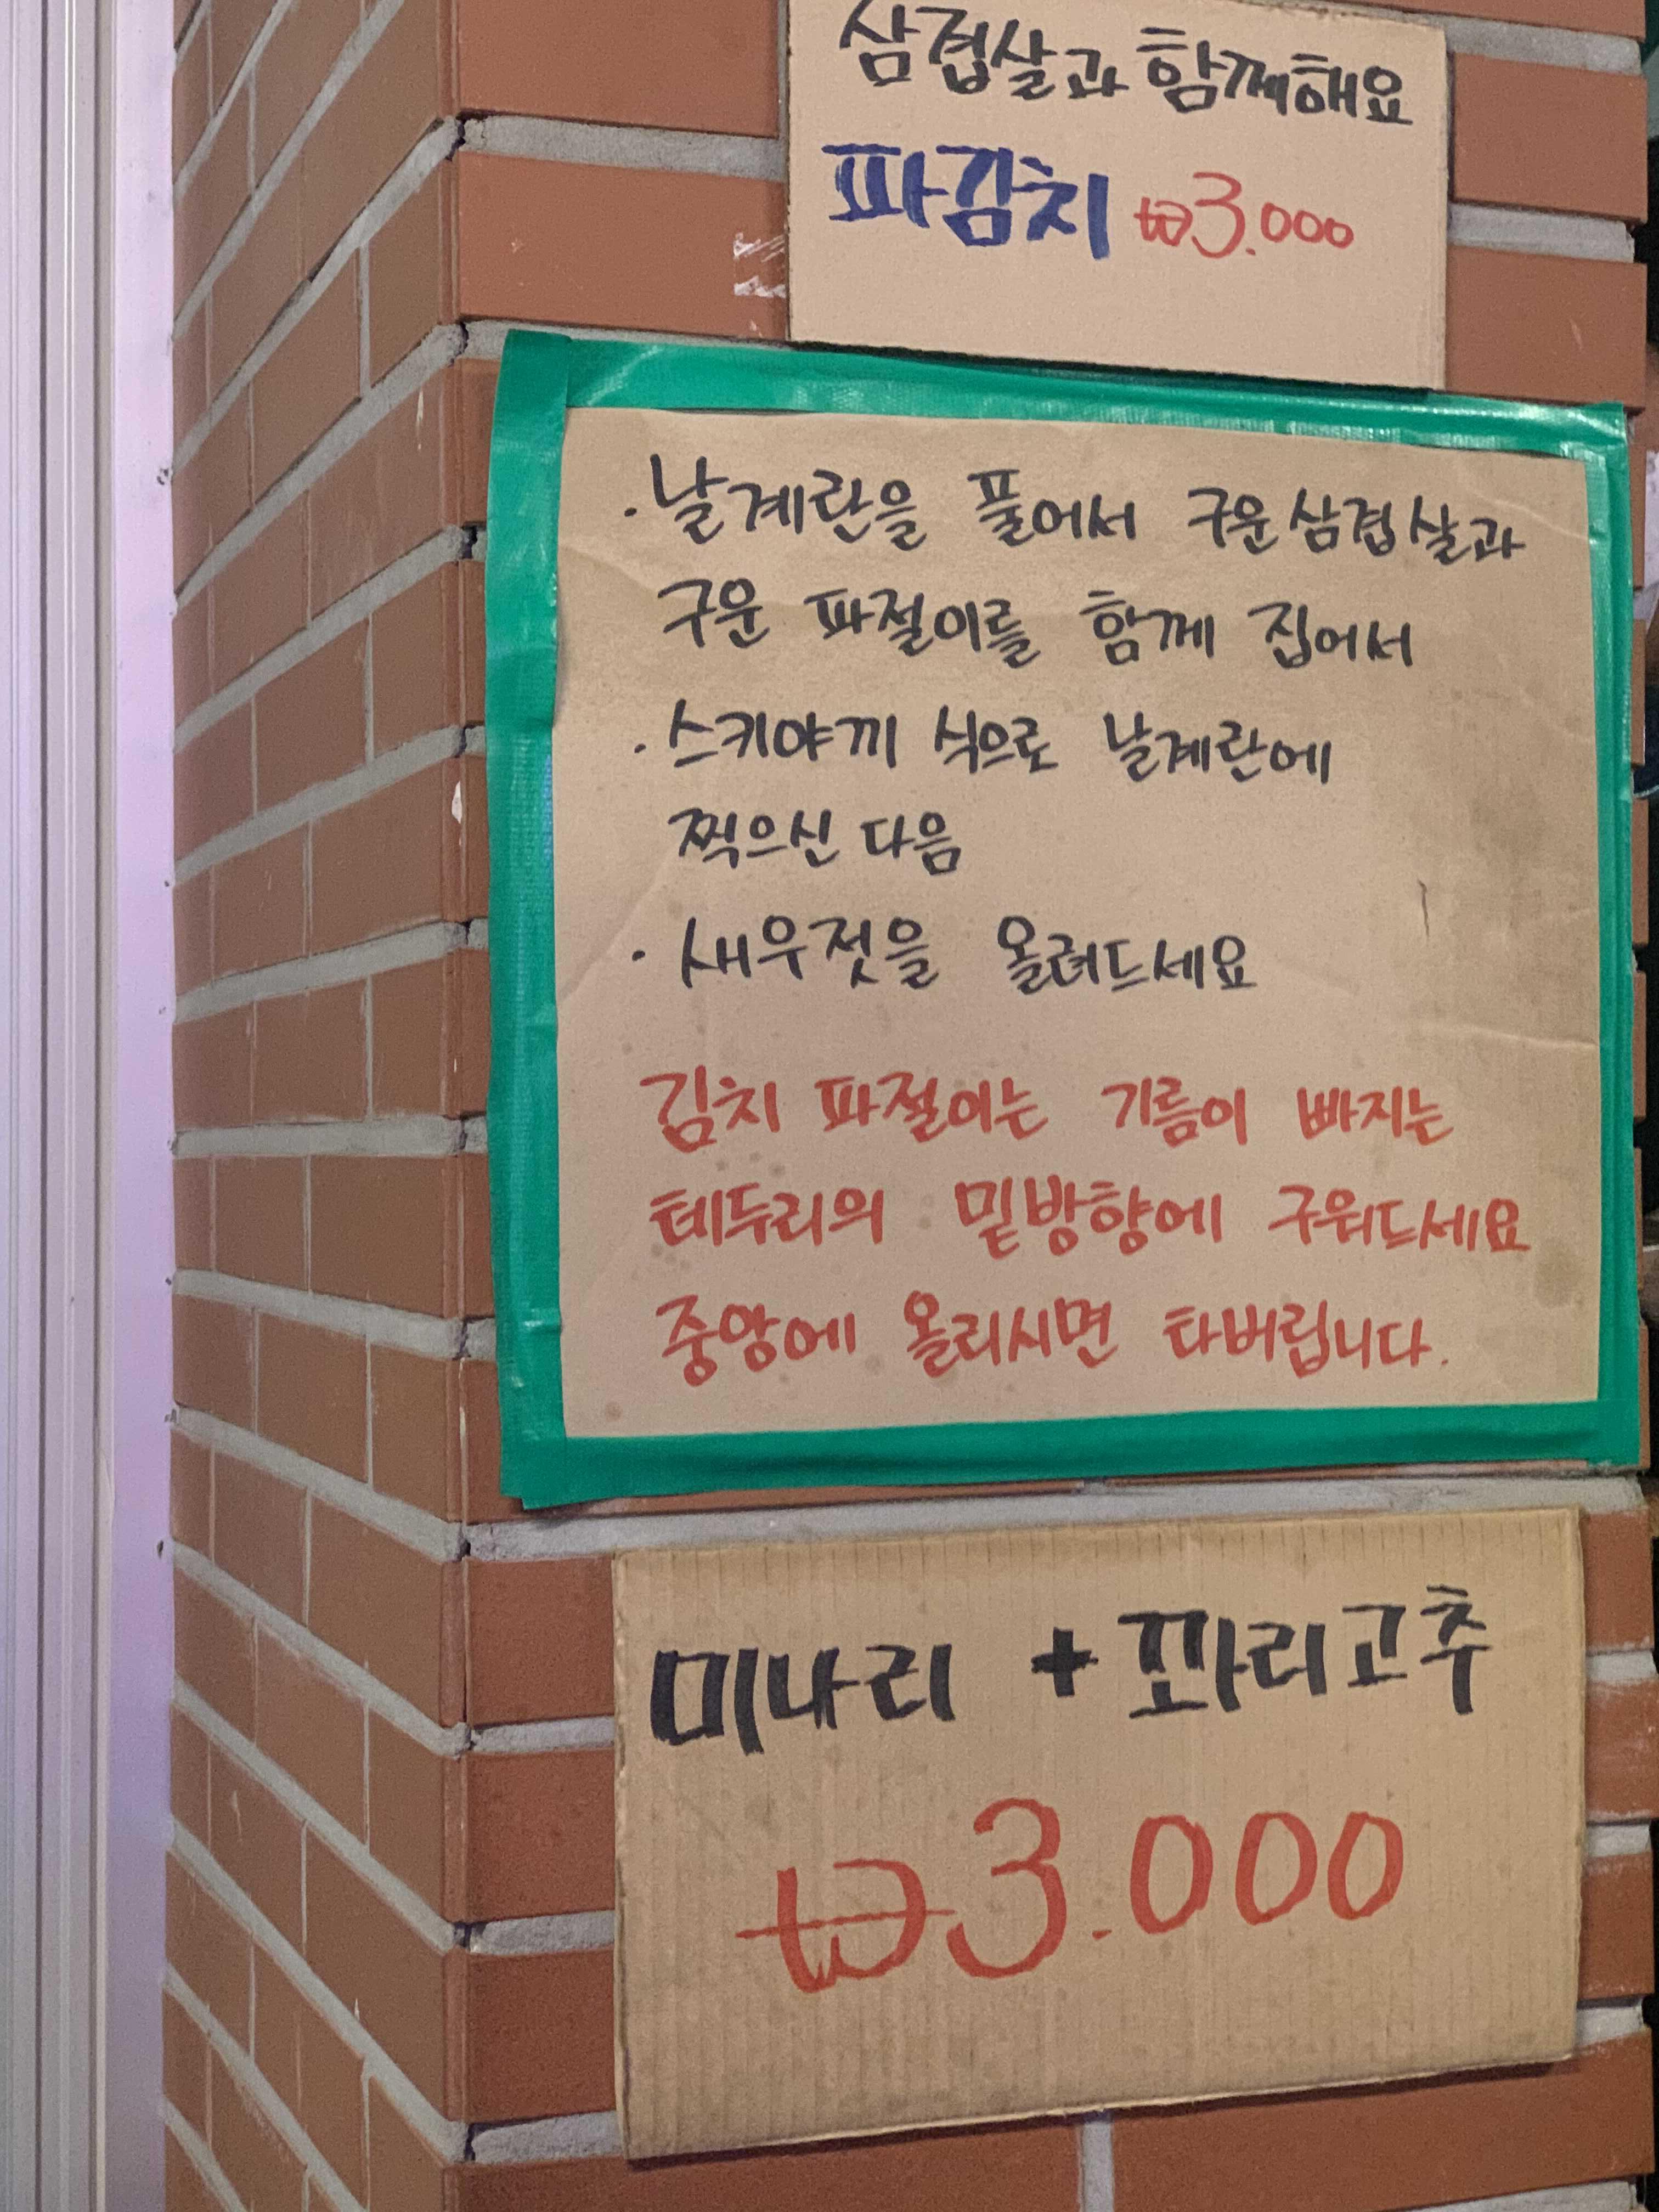 삼겹살과 함께해요
파김치 ₩3.000
· 날계란을 풀어서 구운 삼겹살과
구운 파절이를 함께 집어서
· 스키야끼 식으로 날계란에
찍으신 다음
· 새우젓을 올려드세요
김치 파절이는 기름이 빠지는
테두리의 밑방향에 구워드세요
중앙에 올리시면 타버립니다.
미나리 + 꽈리고추
₩3.000